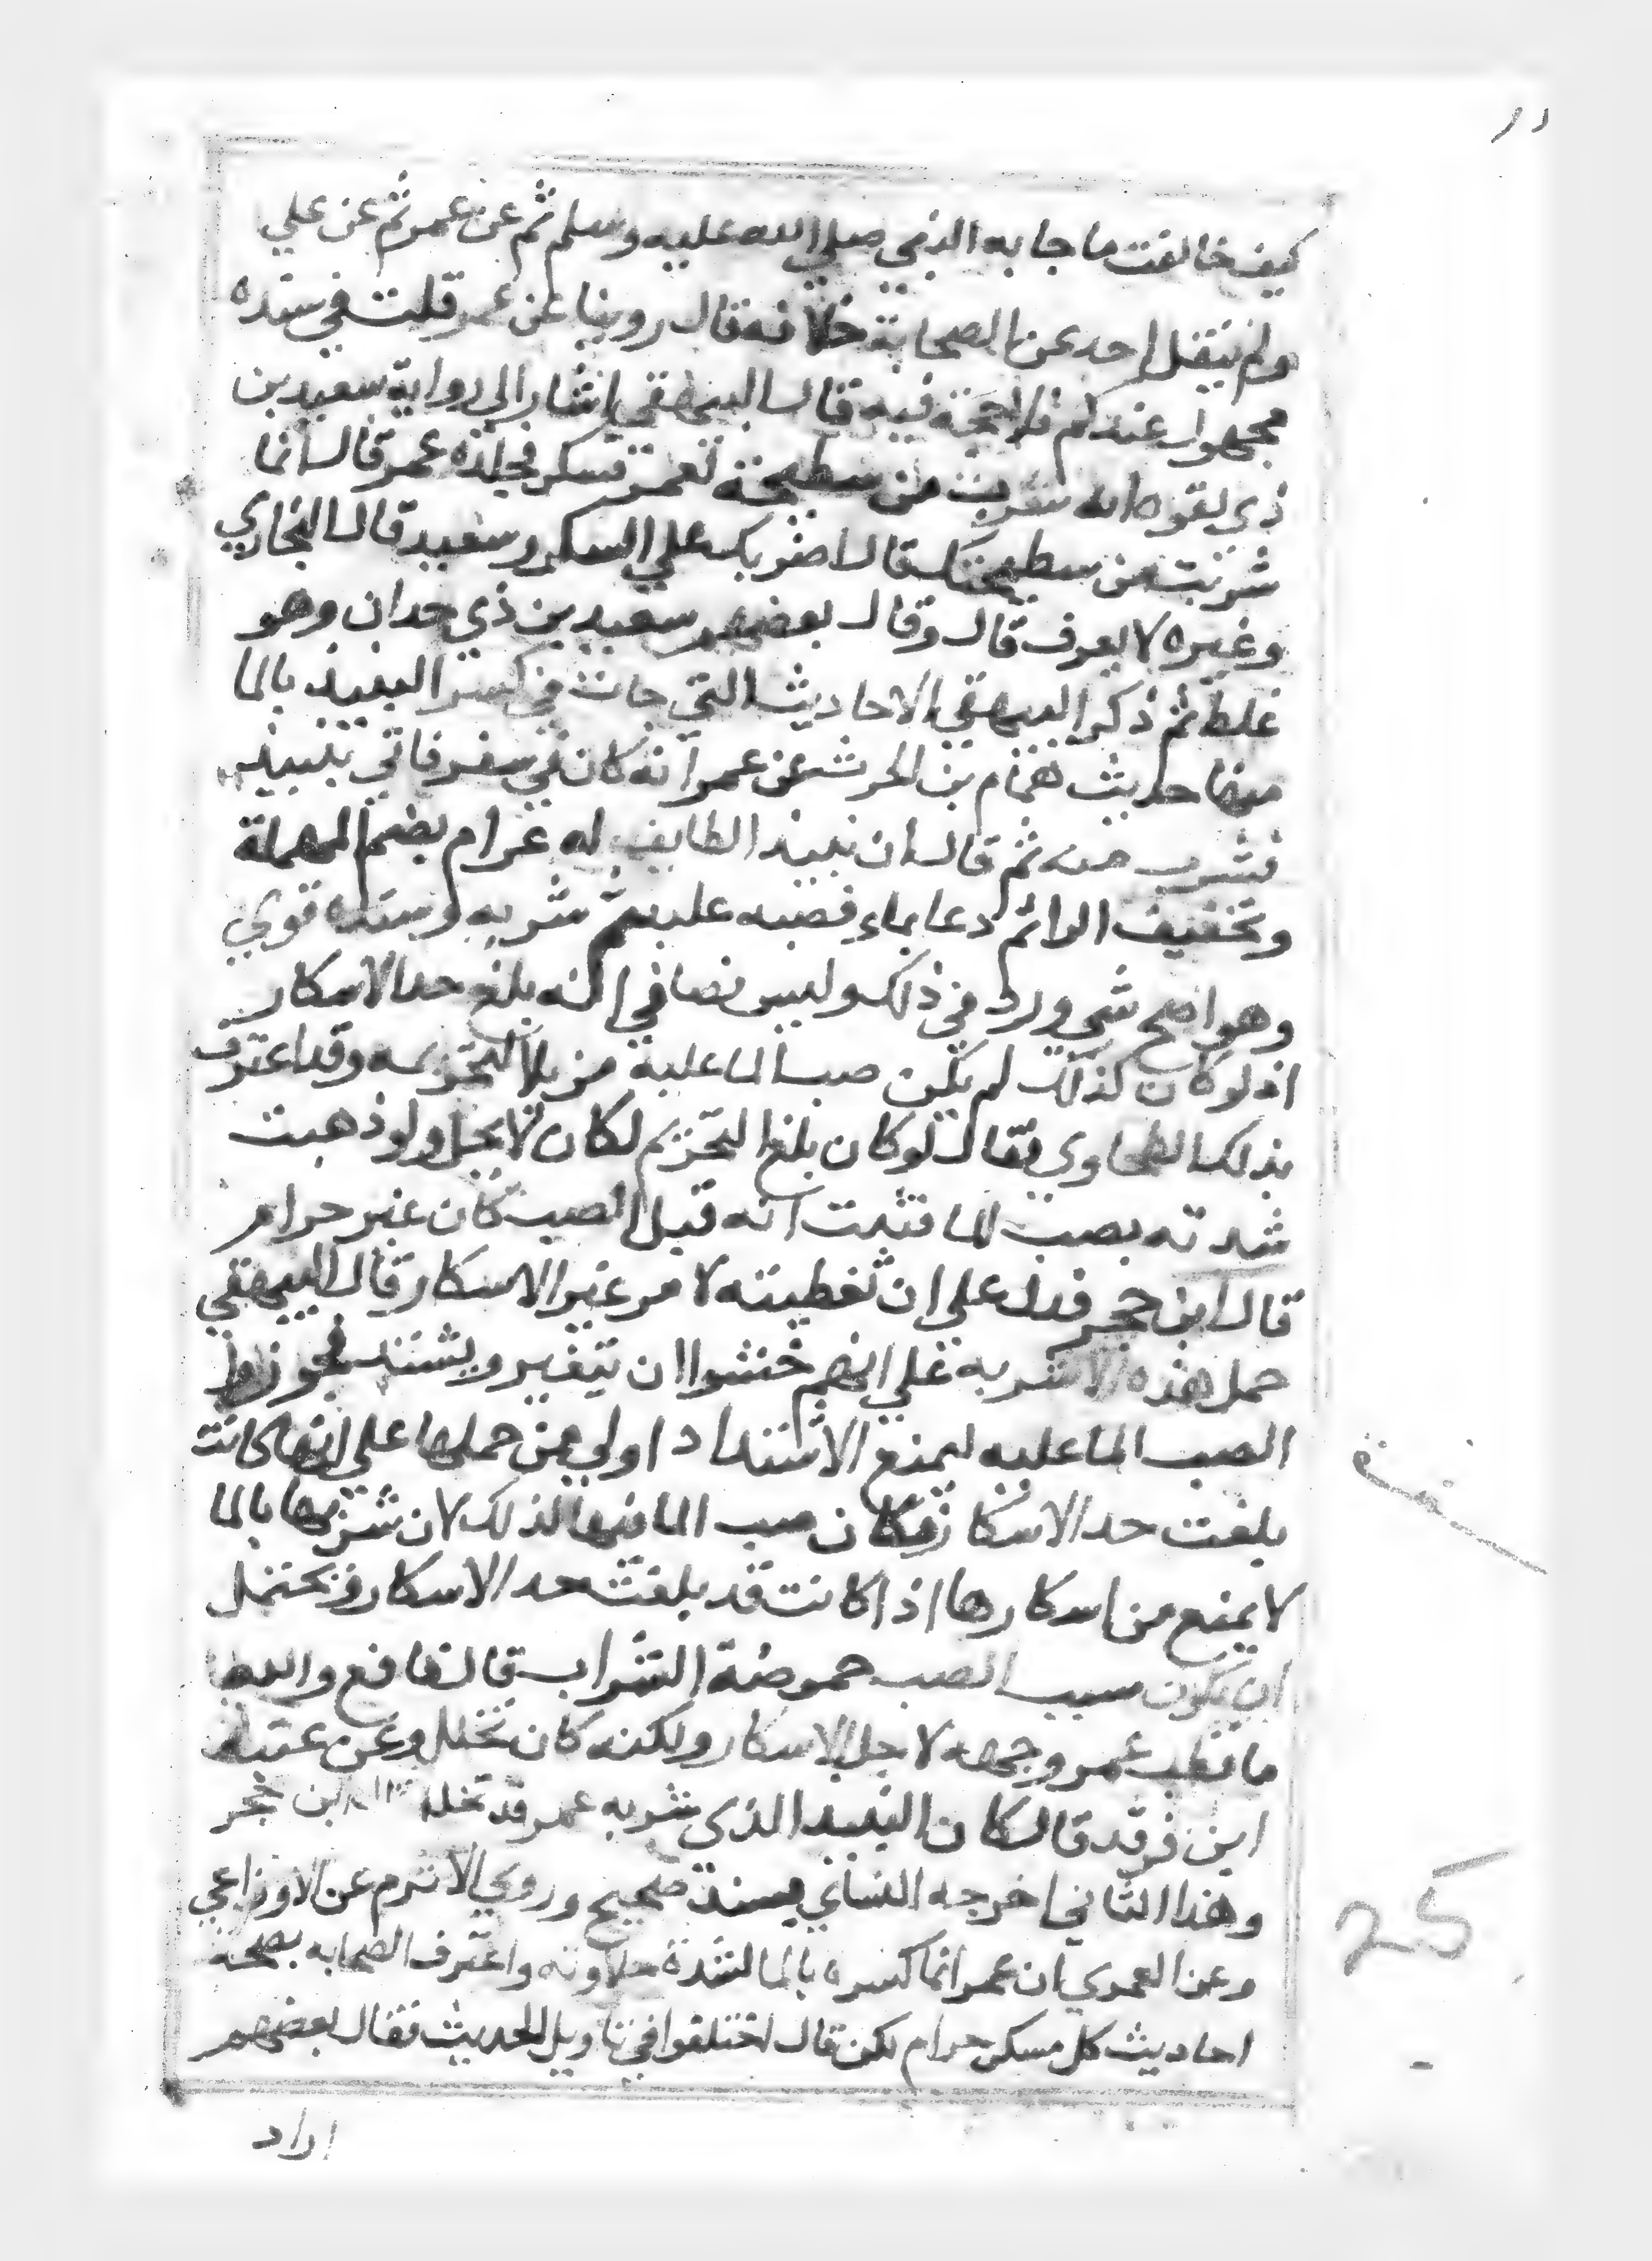 كيف خالفت ما جا به النبي صلي الله عليه وسلم ثم عن عمر ثم عن علي
ولم ينقل احد عن الصحابة خلافه قال روينا عن عمر قلت في سنده
مجهول عندكم فلا حجة فيه قال البيهقي اشار الي رواية سعيد بن
ذي لقوه انه شرب من سطيحة لعمر فسكر فجلده عمر قال انما
شربت من سطيحتك قال اضربك علي السكر وسعيد قال البخاري
وغيره لا يعرف قال وقال بعضهم سعيد بن ذي حدان وهو
غلط ثم ذكر البيهقي الاحاديث التي جات في كسر النبيذ بالما
منها حديث همام بن الحرث عن عمر انه كان في سفر فاتي بنبيذ
فشرب منه ثم قال ان نبيذ الطايف له عرام بضم المهملة
وتخفيف الرا ثم دعا بماء فصبه عليه ثم شربه وسنده قوي
وهو اصح شي ورد في ذلك وليس نصا في انه بلغ حد الاسكار
اذ لو كان كذلك لم يكن صب الما عليه مزيلا لتحريمه وقد اعترف
بذلك الطحاوي فقال لو كان بلغ التحريم لكان لا يحل ولو ذهبت
شدته بصب الما فثبت انه قبل الصب كان غير حرام
قال ابن حجر فدل علي ان تغطيته لامر غير الاسكار قال البيهقي
حمل هذه الاشربه علي انهم خشوا ان يتغير ويشتد فجوزوا
الصب الما عليه ليمنع الاشتداد اولي من حملها علي انها كانت
بلغت حد الاسكار فكان صب الما فيها لذلك لان شربها بالما
لا يمنع من اسكارها اذا كانت قد بلغت حد الاسكار فيحتمل
ان يكون سبب الصب حموضة الشراب قال نافع والله
ما قطب عمر وجهه لاجل الاسكار ولكنه كان تخلل وعن عتبة
ابن فرقد قال كان النبيذ الذي شربه عمر قد تخلل قال ابن حجر
وهذا الثاني اخرجه النساي بسند صحيح وروي الاثرم عن الاوزاعي
وعن العمري ان عمر انما كسره بالما لشدة حلاوته واعترف الصحابه بصحة
احاديث كل مسكر حرام لكن قال اختلفوا في تاويل الحديث فقال بعضهم
اراد
25